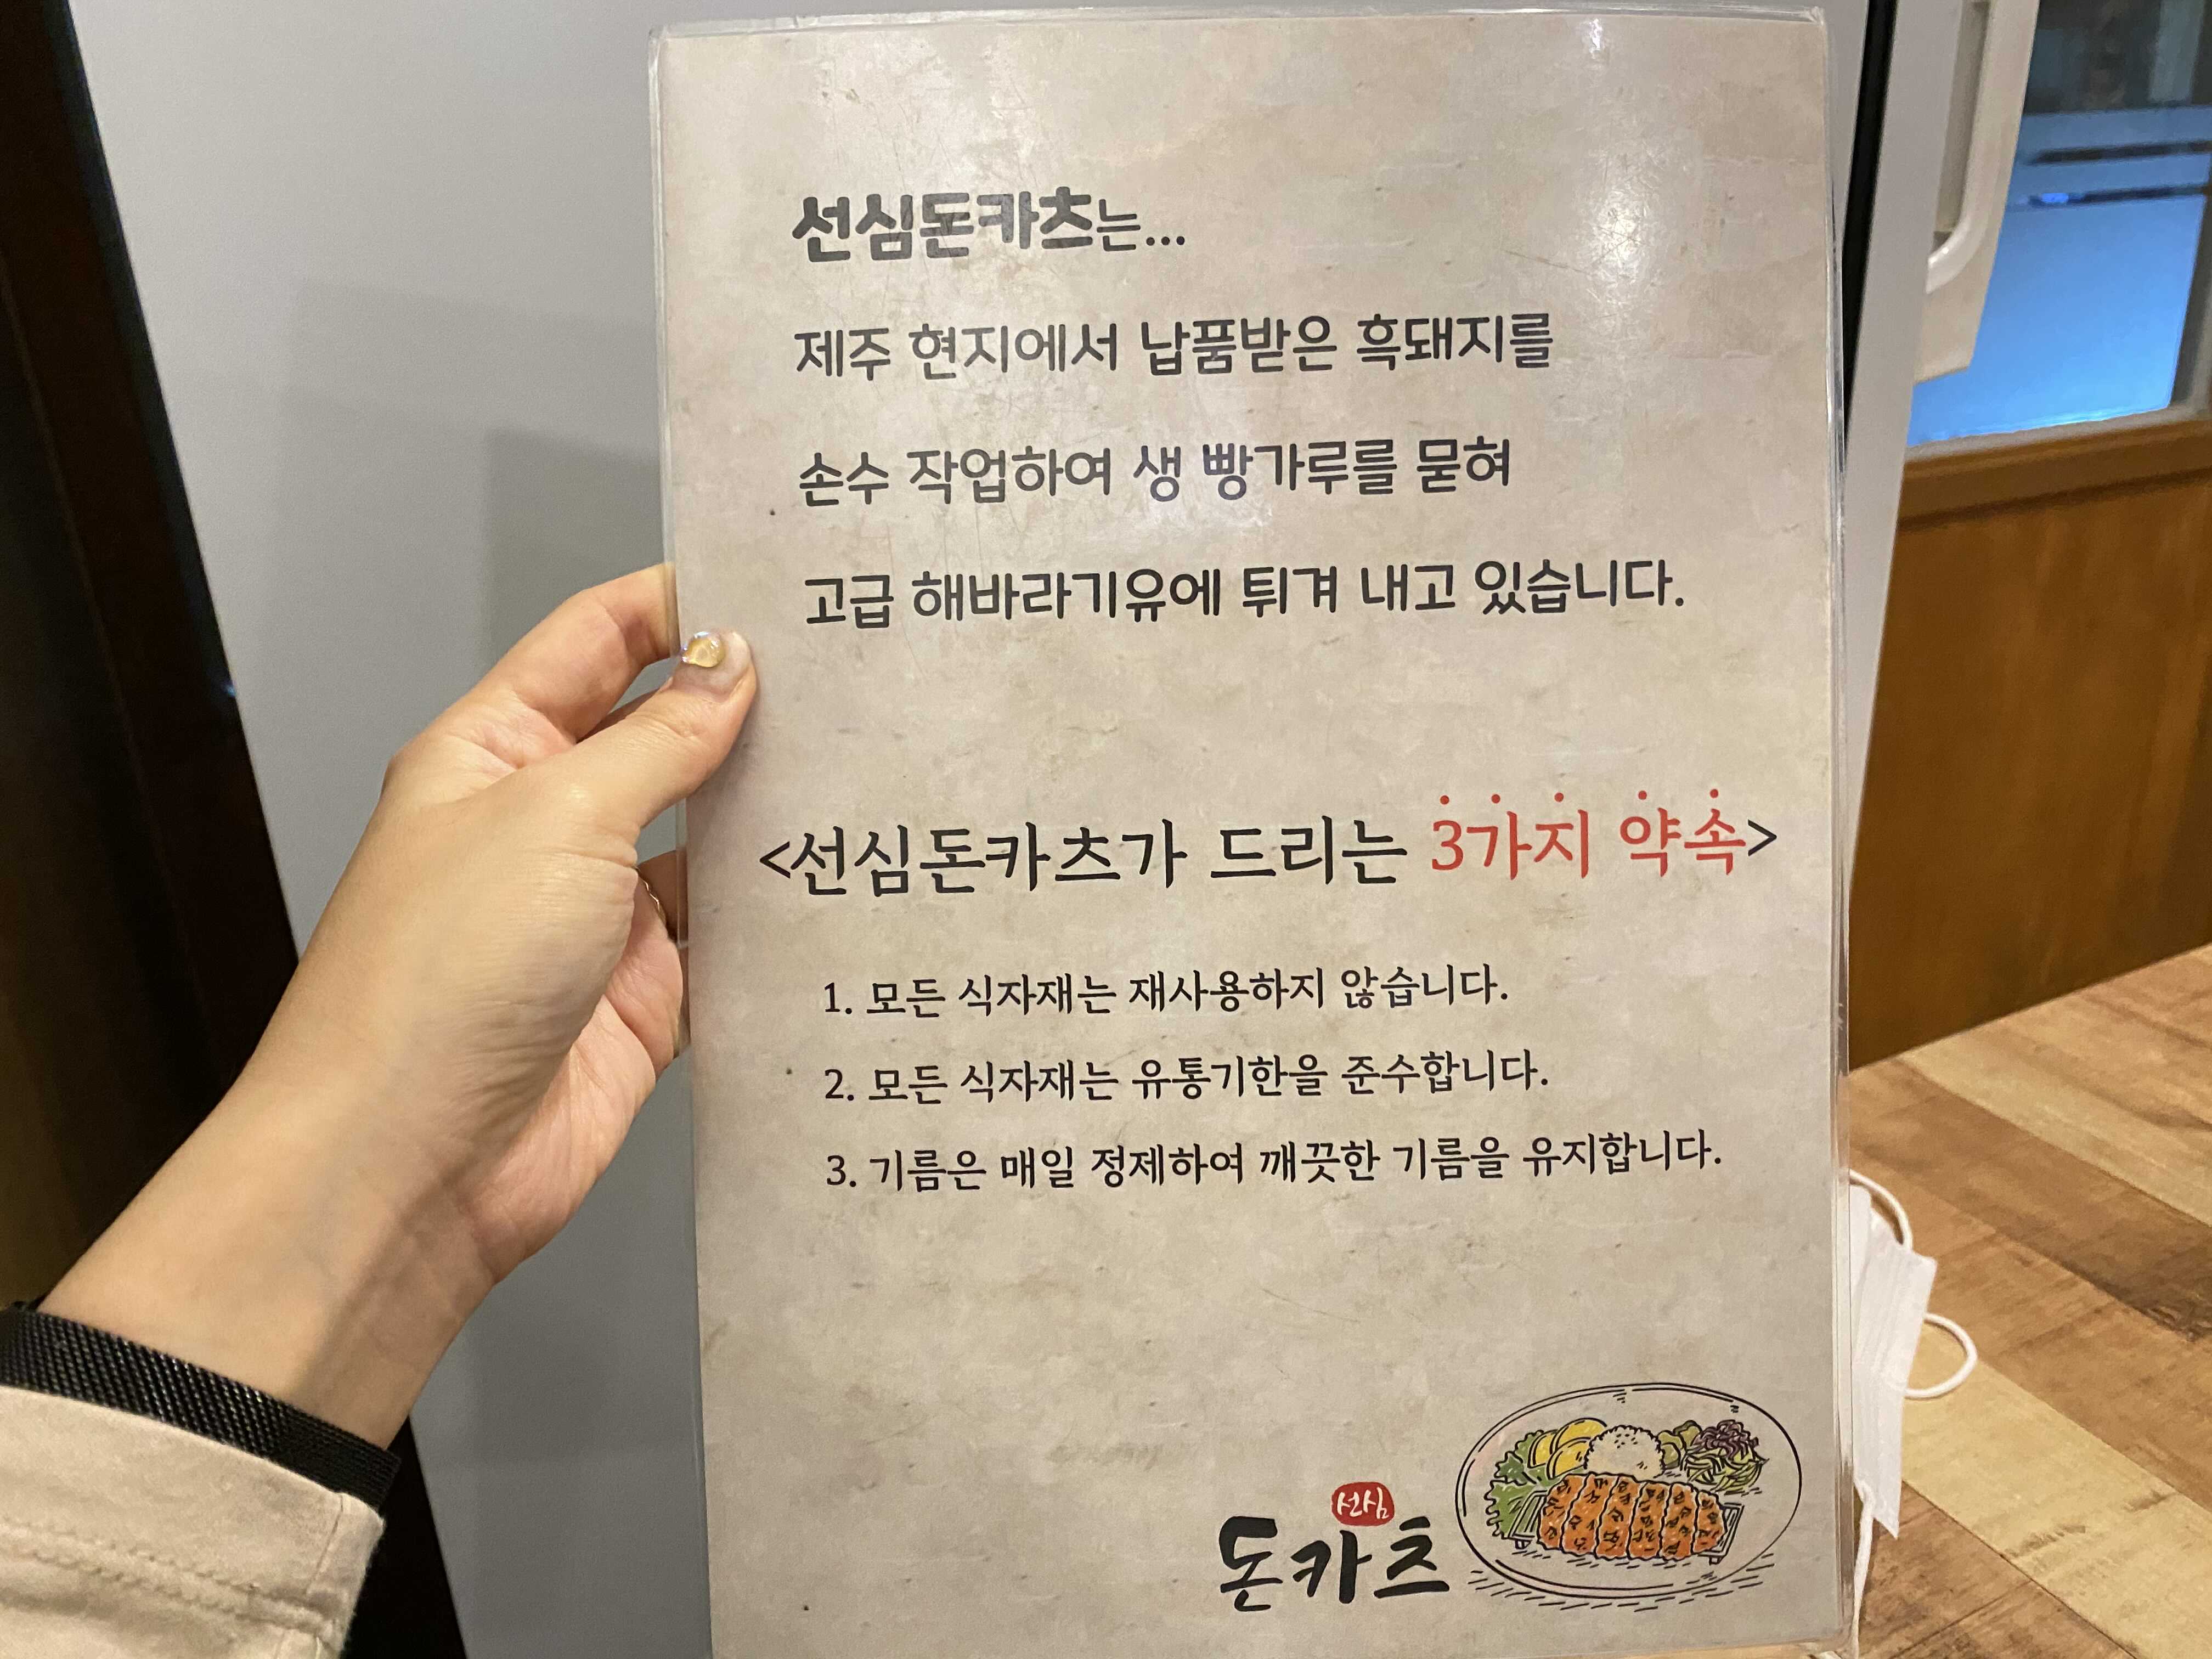 선심돈카츠는...
제주 현지에서 납품받은 흑돼지를
손수 작업하여 생 빵가루를 묻혀
고급 해바라기유에 튀겨 내고 있습니다.
<선심돈카츠가 드리는 3가지 약속>
1. 모든 식자재는 재사용하지 않습니다.
2. 모든 식자재는 유통기한을 준수합니다.
3. 기름은 매일 정제하여 깨끗한 기름을 유지합니다.
선심
돈카츠